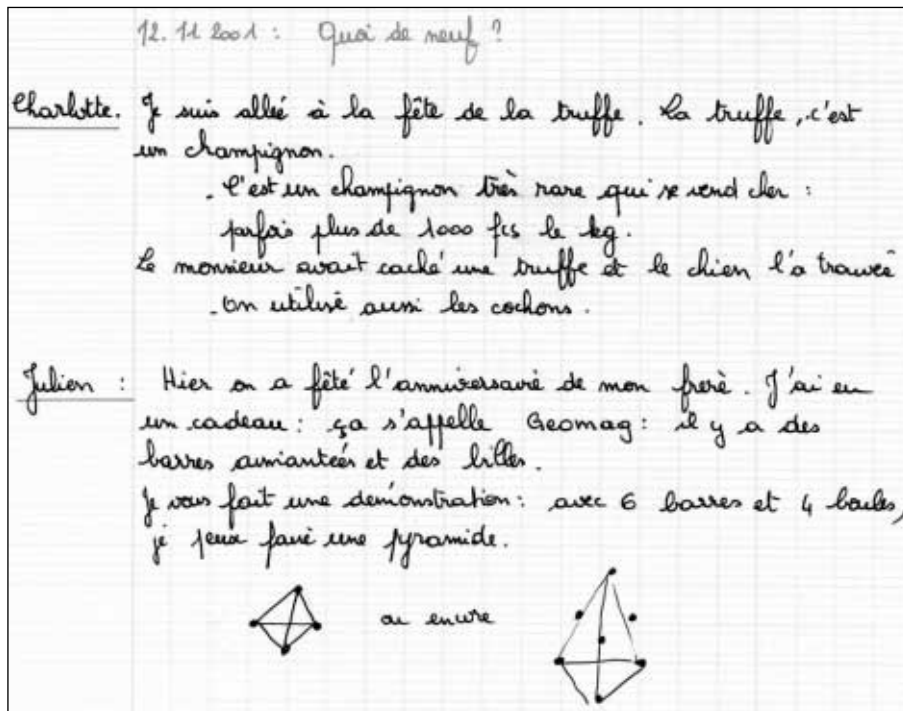 12.11 2001 : Quoi de neuf ?
Charlotte. Je suis alleé à la fête de la truffe. La truffe, c'est
un champignon.
. C'est un champignon très rare qui se vend cher :
parfois plus de 1000 fcs le kg.
Le monsieur avait caché une truffe et le chien l'a trouveé
. On utilise aussi les cochons.
Julien : Hier on a fêté l'anniversaire de mon frere. J'ai eu
un cadeau : ça s'appelle Geomag : il y a des
barres aimanteés et des billes.
Je vous fait une demonstration : avec 6 barres et 4 boules,
je peux faire une pyramide.
ou encore